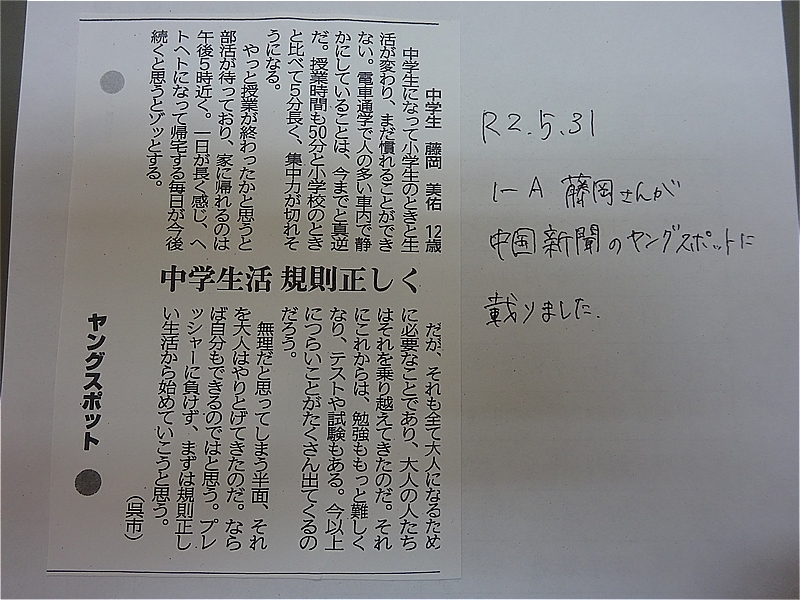 中学生 藤岡 美佑 12歳
中学生になって小学生のときと生
活が変わり、まだ慣れることができ
ない。電車通学で人の多い車内で静
かにしていることは、今までと真逆
だ。授業時間も50分と小学校のとき
と比べて5分長く、集中力が切れそ
うになる。
やっと授業が終わったかと思うと
部活が待っており、家に帰れるのは
午後5時近く。一日が長く感じ、ヘ
トヘトになって帰宅する毎日が今後
続くと思うとゾッとする。
中学生活 規則正しく
だが、それも全て大人になるため
に必要なことであり、大人の人たち
はそれを乗り越えてきたのだ。それ
にこれからは、勉強ももっと難しく
なり、テストや試験もある。今以上
につらいことがたくさん出てくるの
だろう。
無理だと思ってしまう半面、それ
を大人はやりとげてきたのだ。なら
ば自分もできるのではと思う。プレ
ッシャーに負けず、まずは規則正し
い生活から始めていこうと思う。
(呉市)
ヤングスポット
R2.5.31
1-A 藤岡さんが
中国新聞のヤングスポットに
載りました.